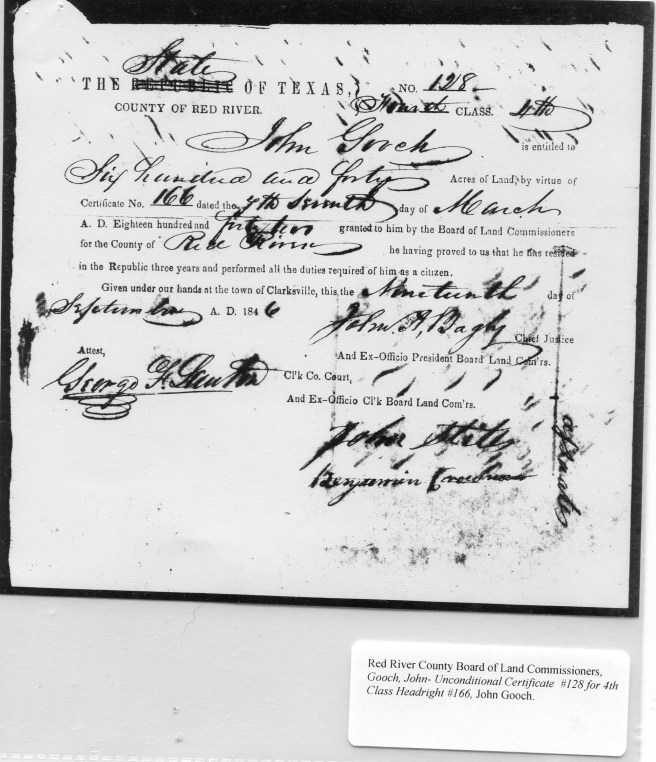 State
THE REPUBLIC OF TEXAS, NO. 128
COUNTY OF RED RIVER. Fourth CLASS. 4th
John Gooch is entitled to
Six hundred and forty Acres of Land, by virtue of
Certificate No. 166 dated the 7th Seventh day of March
A. D. Eighteen hundred and forty two granted to him by the Board of Land Commissioners
for the County of Red River he having proved to us that he has resided
in the Republic three years and performed all the duties required of him as a citizen.
Given under our hands at the town of Clarksville, this, the Nineteenth day of
September A. D. 1846
John A, Bagby Chief Justice
Attest, And Ex-Officio President Board Land Com'rs.
George F. Cl'k Co. Court,
And Ex-Officio Cl'k Board Land Com'rs.
John Stiles
Benjamin
Red River County Board of Land Commissioners,
Gooch, John- Unconditional Certificate #128 for 4th
Class Headright #166, John Gooch.